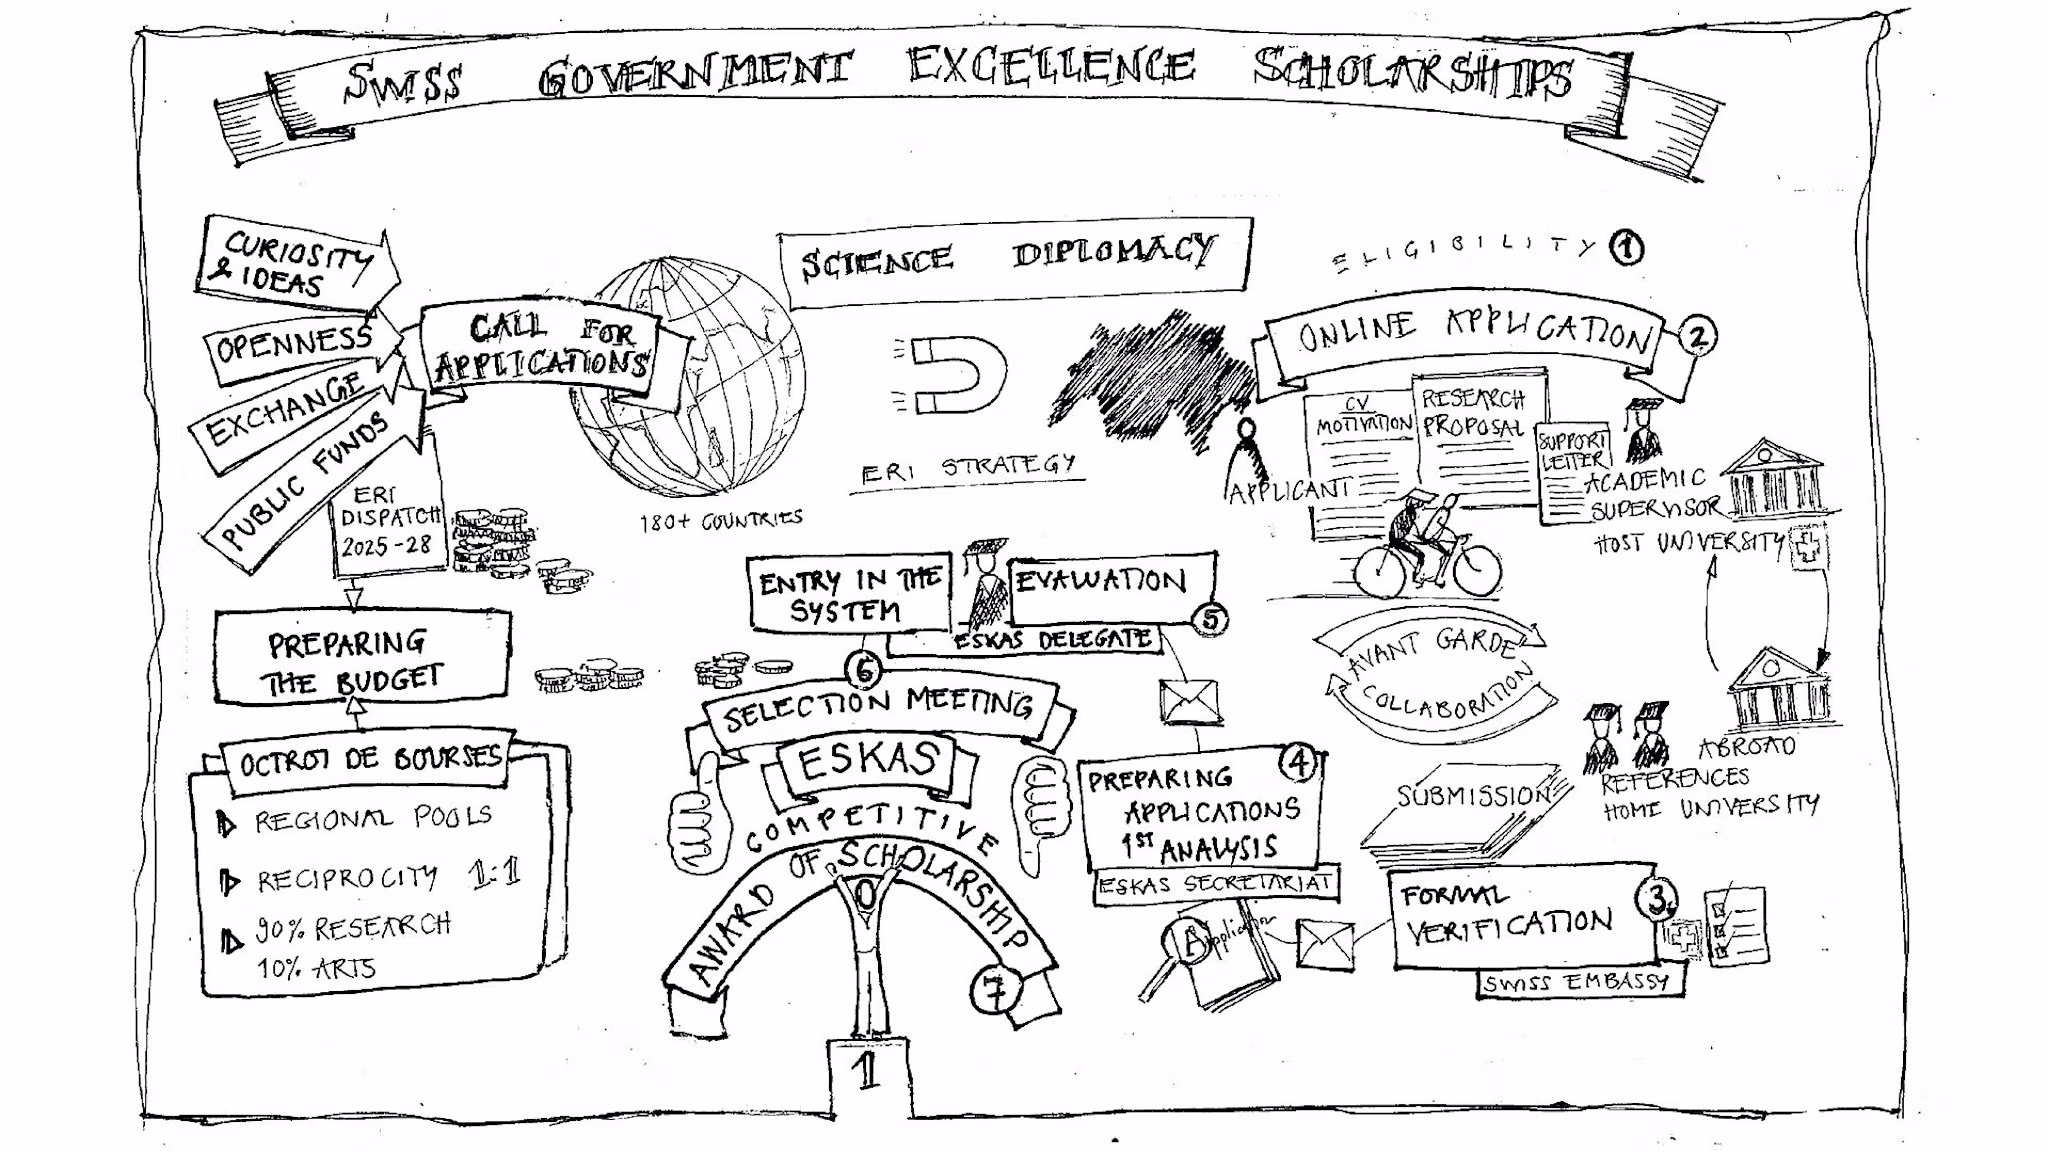 SWISS GOVERNMENT EXCELLENCE SCHOLARSHIPS
CURIOSITY
& IDEAS
OPENNESS
EXCHANGE
PUBLIC FUNDS
CALL FOR
APPLICATIONS
180+ COUNTRIES
SCIENCE DIPLOMACY
ERI STRATEGY
ELIGIBILITY 1
ONLINE APPLICATION 2
CV
MOTIVATION
RESEARCH
PROPOSAL
SUPPORT
LETTER
APPLICANT
ACADEMIC
SUPERVISOR
HOST UNIVERSITY
AVANT GARDE
COLLABORATION
ABROAD
REFERENCES
HOME UNIVERSITY
SUBMISSION
FORMAL
VERIFICATION
3
SWISS EMBASSY
PREPARING
APPLICATIONS
1ST ANALYSIS
4
ESKAS SECRETARIAT
Application
EVALUATION
5
ESKAS DELEGATE
ENTRY IN THE
SYSTEM
6
SELECTION MEETING
ESKAS
COMPETITIVE
AWARD OF SCHOLARSHIP
7
1
ERI
DISPATCH
2025-28
PREPARING
THE BUDGET
OCTROI DE BOURSES
REGIONAL POOLS
RECIPROCITY 1:1
90% RESEARCH
10% ARTS